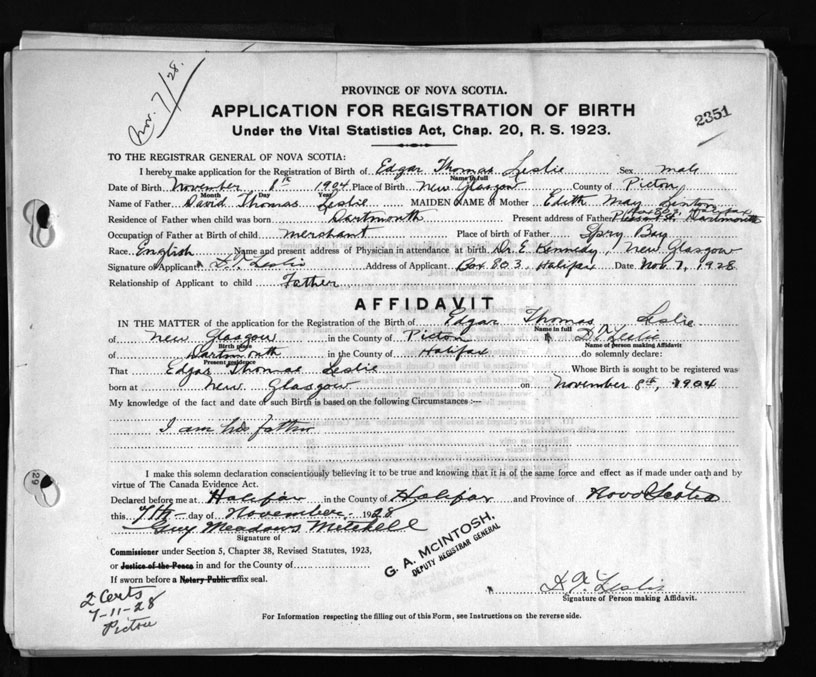 Nov. 7/28.
PROVINCE OF NOVA SCOTIA.
APPLICATION FOR REGISTRATION OF BIRTH
2351
Under the Vital Statistics Act, Chap. 20, R. S. 1923.
TO THE REGISTRAR GENERAL OF NOVA SCOTIA:
I hereby make application for the Registration of Birth of Edgar Thomas Leslie Sex male
Name in full
Date of Birth November 8th 1904 Place of Birth New Glasgow County of Pictou
Month Day Year
Name of Father David Thomas Leslie MAIDEN NAME of Mother Edith May
Residence of Father when child was born Dartmouth Present address of Father Dartmouth
Occupation of Father at Birth of child merchant Place of birth of Father Spry Bay
Race English Name and present address of Physician in attendance at birth Dr. E. Kennedy, New Glasgow
Signature of Applicant D. T. Leslie Address of Applicant Box 803, Halifax Date Nov. 7, 1928
Relationship of Applicant to child Father
AFFIDAVIT
IN THE MATTER of the application for the Registration of Birth of Edgar Thomas Leslie
Name in full
of New Glasgow in the County of Pictou D. T. Leslie
Birth place Name of person making Affidavit
of Dartmouth in the County of Halifax do solemnly declare:
Present residence
That Edgar Thomas Leslie Whose Birth is sought to be registered was
born at New Glasgow on November 8th, 1904
My knowledge of the fact and date of such Birth is based on the following Circumstances :—
I am his father
I make this solemn declaration conscientiously believing it to be true and knowing that it is of the same force and effect as if made under oath and by
virtue of The Canada Evidence Act.
Declared before me at Halifax in the County of Halifax and Province of Nova Scotia
this 7th day of November 1928
Guy Meadows Mitchell
Signature of
Commissioner under Section 5, Chapter 38, Revised Statutes, 1923,
or Justice of the Peace in and for the County of
If sworn before a Notary Public affix seal.
G. A. McINTOSH,
DEPUTY REGISTRAR GENERAL
D. T. Leslie
Signature of Person making Affidavit.
2 Certs
7-11-28
Pictou
For Information respecting the filling out of this Form, see Instructions on the reverse side.
29